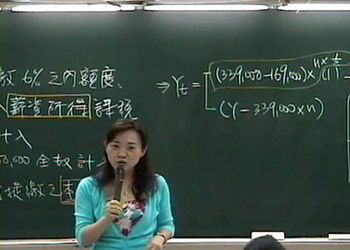 繳6%之內額度、
入薪資所得課稅
計入
0,000全數計
提繳之本
⇒ Yt = (339,000-169,000)×n×½
(Y-339,000×n)